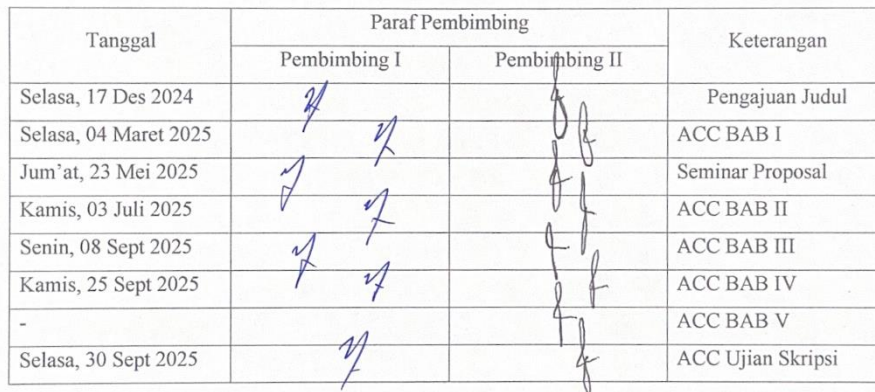 Tanggal Paraf Pembimbing Keterangan
Pembimbing I Pembimbing II
Selasa, 17 Des 2024 Pengajuan Judul
Selasa, 04 Maret 2025 ACC BAB I
Jum'at, 23 Mei 2025 Seminar Proposal
Kamis, 03 Juli 2025 ACC BAB II
Senin, 08 Sept 2025 ACC BAB III
Kamis, 25 Sept 2025 ACC BAB IV
- ACC BAB V
Selasa, 30 Sept 2025 ACC Ujian Skripsi